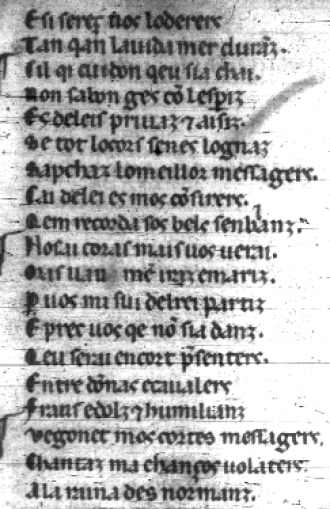 E si serez uos loderers
Tan qan lauida mer duraz.
Cil qi cuidon qeu sia chai.
Non sabon ges cõ lesperiz
Es deleis priuaz ⁊ aisiz.
Se tot locors senes lognaz
Sapchaz lo meillor messagers.
Cai delei es mos cõsirers.
Qem recorda sos bels senblanz.
No sai coras mais uos uerai.
Mas uau mẽ irez emariz.
ꝑ uos mi sui delrei partiz
E prec uos qe nõ sia danz.
Qeu serai encort p̃senters.
Entre dõnas ecaualers
Francs edolz ⁊ humilianz
Vgonet mos cortes messagers.
Chantaz ma chanços uolaters.
A la raina des normanz.